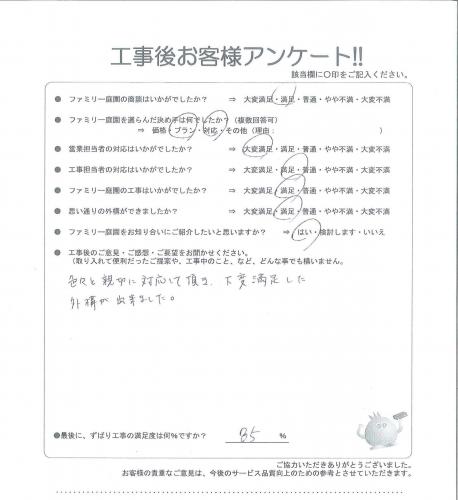 工事後お客様アンケート!!
該当欄に○印をご記入ください。
● ファミリー庭園の商談はいかがでしたか？ ⇒ 大変満足・満足・普通・やや不満・大変不満
● ファミリー庭園を選らんだ決め手は何でしたか？（複数回答可）
⇒ 価格・プラン・対応・その他（理由： ）
● 営業担当者の対応はいかがでしたか？ ⇒ 大変満足・満足・普通・やや不満・大変不満
● 工事担当者の対応はいかがでしたか？ ⇒ 大変満足・満足・普通・やや不満・大変不満
● ファミリー庭園の工事はいかがでしたか？ ⇒ 大変満足・満足・普通・やや不満・大変不満
● 思い通りの外構ができましたか？ ⇒ 大変満足・満足・普通・やや不満・大変不満
● ファミリー庭園をお知り合いにご紹介したいと思いますか？ ⇒ はい・検討します・いいえ
● 工事後のご意見・ご感想・ご要望をお聞かせください。
（取り入れて便利だったご提案や、工事中のこと、など、どんな事でも構いません。
色々と親切に対応して頂き、大変満足した
外構が出来ました。
●最後に、ずばり工事の満足度は何％ですか？ 85 ％
ご協力いただきありがとうございました。
お客様の貴重なご意見は、今後のサービス品質向上のための参考とさせていただきます。